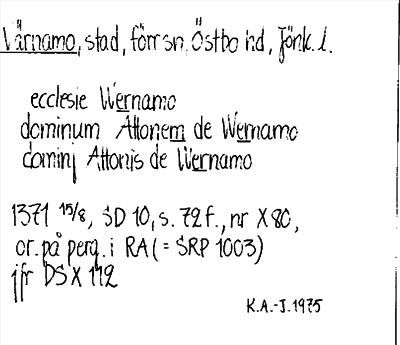 Värnamo, stad, förrsn, Östbo hd, Jönk. l.
ecclesie Wernamo
dominum Attonem de Wernamo
dominj Attonis de Wernamo
1371 15/8, SD 10, s. 72 f., nr X 80,
or. på perg. i RA (= SRP 1003)
jfr DS X 112
K.A.-J. 1975